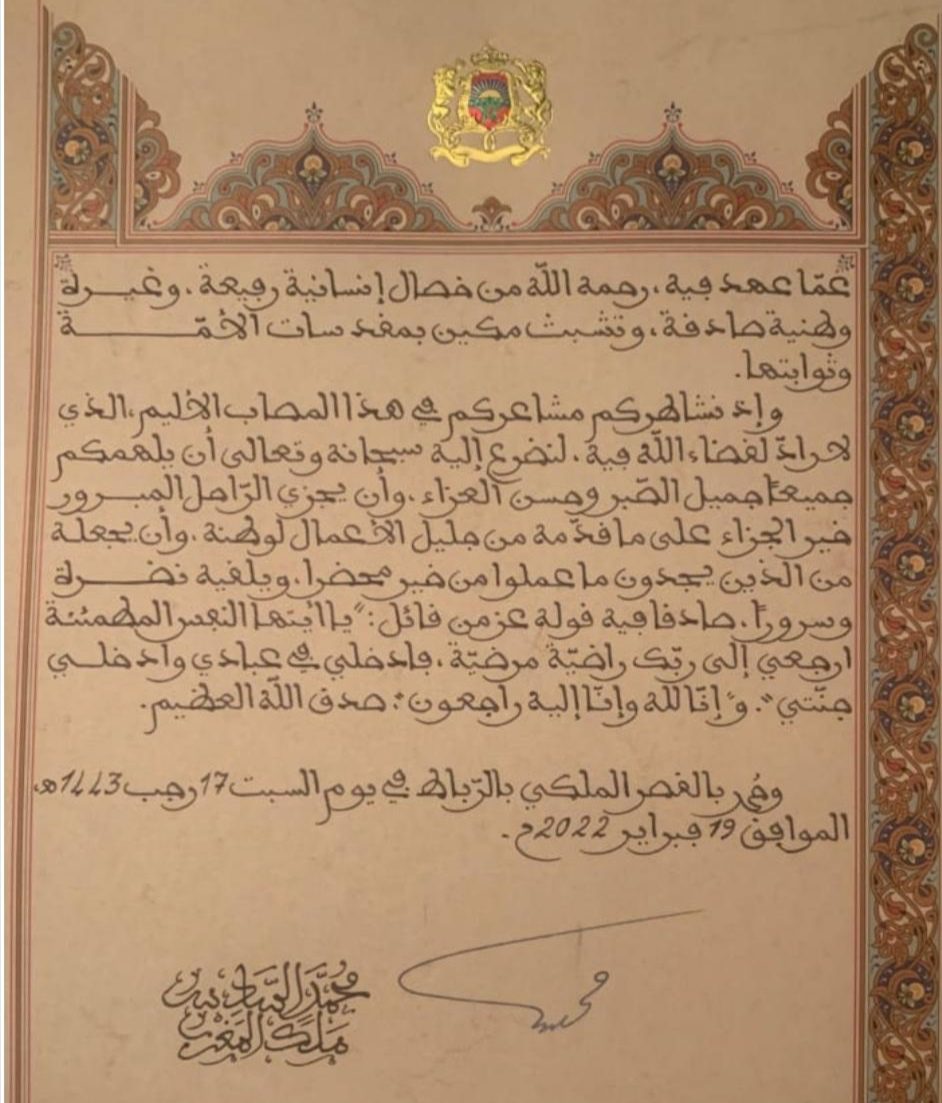 عمّا عهد فيه، رحمه الله من خصال إنسانية رفيعة، وغيرة
وطنية صادقة، وتشبث مكين بمقدسات الأمّة
وثوابتها.
وإذ نشاطركم مشاعركم في هذا المصاب الأليم، الذي
لا رادّ لقضاء الله فيه، لنضرع إليه سبحانه وتعالى أن يلهمكم
جميعا جميل الصّبر وحسن العزاء، وأن يجزي الرّاحل المبرور
خير الجزاء على ما قدّمه من جليل الأعمال لوطنه، وأن يجعله
من الذين يجدون ما عملوا من خير محضرا، ويلقيه نضرة
وسرورا، صادقا فيه قوله عز من قائل: "يا أيتها النفس المطمئنة
ارجعي إلى ربّك راضيّة مرضيّة، فادخلي في عبادي وادخلي
جنّتي". و"إنّا لله وإنّا إليه راجعون". صدق الله العظيم.
وحُرر بالقصر الملكي بالرّباط في يوم السبت 17 رجب 1443هـ،
الموافق 19 فبراير 2022م.
محمد السادس
ملك المغرب